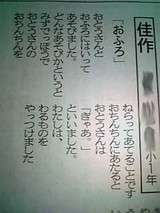 佳作
小1年
「おふろ」
おとうさんと
おふろにはいって
あそびました。
どんなあそびかというと
みずでっぽうで
おとうさんの
おちんちんを
ねらってあてることです
おちんちんにあたると
おとうさんは
「ぎゃあ。」
といいました。
わたしは、
わるものを
やっつけました